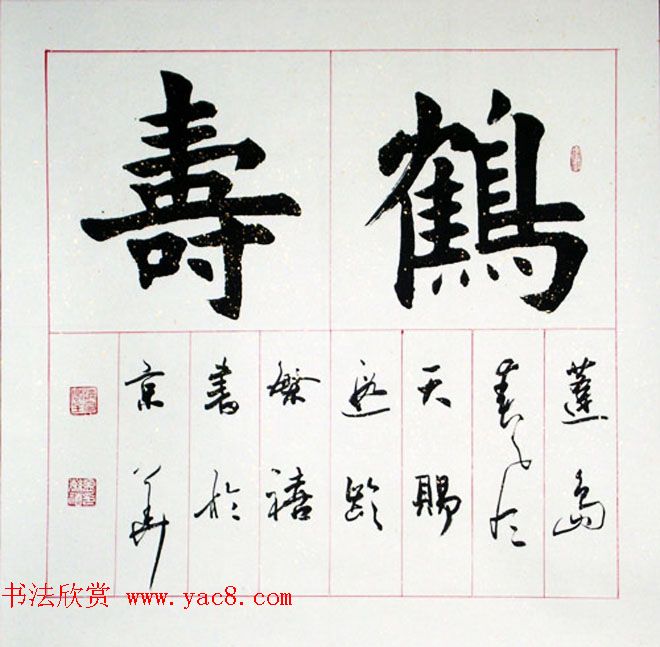 鶴壽
蓬島
天賜
遐齡
繁禧
書於
京華
书法欣赏 www.yac8.com